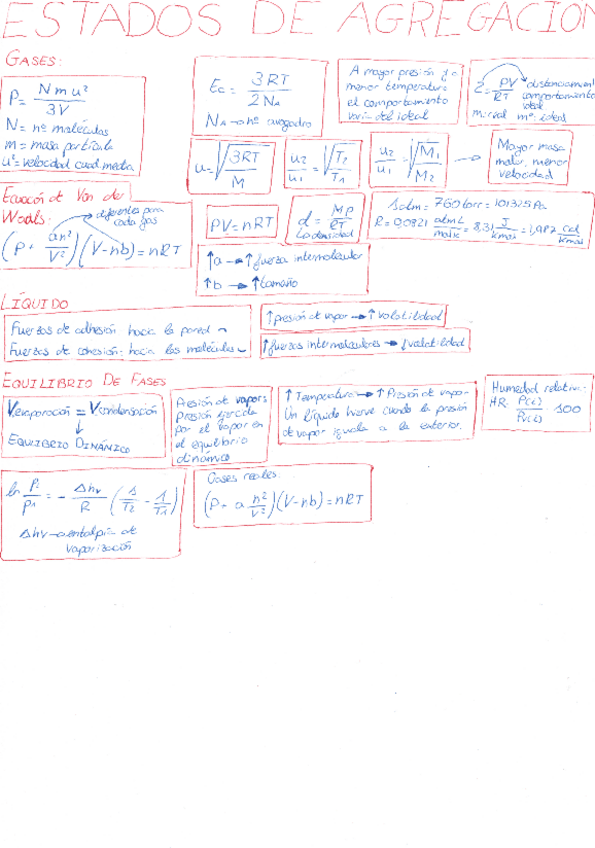 ESTADOS DE AGREGACION
GASES:
P = N m u² / 3V
N = nº moléculas
m = masa partícula
u² = velocidad cuad. media
Ec = 3RT / 2NA
NA → nº avogadro
A mayor presión y a
menor temperatura
el comportamiento
del ideal
Z = PV / RT
distanciamiento
comportamiento
ideal
m: real mº: ideal
u = √(3RT / M)
u2 / u1 = √(T2 / T1)
u2 / u1 = √(M1 / M2) →
Mayor masa
molar, menor
velocidad
Ecuación de Van der
Waals:
diferentes para
cada gas
(P + an² / V²)(V - nb) = nRT
PV = nRT
d = MP / RT
La densidad
1 atm = 760 torr = 101325 Pa
R = 0,0821 atm L / mol K = 8,31 J / K mol = 1,987 Cal / K mol
↑a → ↑fuerza intermolecular
↑b → ↑tamaño
LÍQUIDO
Fuerzas de adhesión hacia la pared
Fuerzas de cohesión: hacia las moléculas
↑presión de vapor → ↑volatilidad
↑fuerzas intermoleculares → ↓volatilidad
EQUILIBRIO DE FASES
Vevaporación = Vcondensación
↓
EQUILIBRIO DINÁMICO
Presión de vapor:
presión ejercida
por el vapor en
el equilibrio
dinámico
↑Temperatura → ↑Presión de vapor
Un líquido hierve cuando la presión
de vapor iguala a la exterior.
Humedad relativa:
HR: · 100
ln P2 / P1 = - Δhv / R (1 / T2 - 1 / T1)
Δhv → entalpía de
vaporización
Gases reales:
(P + a n² / V²)(V - nb) = nRT